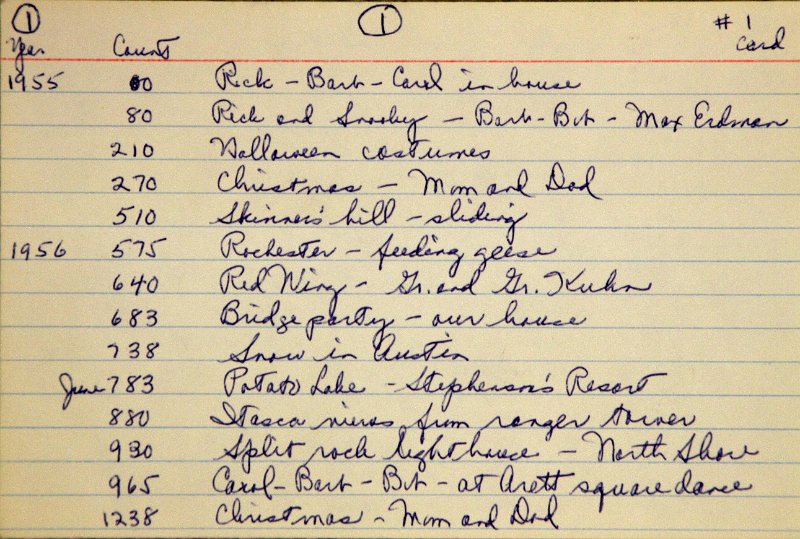 ① ① # 1
Year Counts card
1955 00 Rick - Barb - Carol in house
80 Rick and - Barb - Bob - Max Erdman
210 Halloween costumes
270 Christmas - Mom and Dad
510 Skinner's hill - sliding
1956 575 Rochester - feeding geese
640 Red Wing - Gr. and Gr. Kuhn
683 Bridge party - our house
738 Snow in Austin
June 783 Potato Lake - Stephenson's Resort
880 Itasca views from ranger tower
930 Split rock lighthouse - North Shore
965 Carol - Barb - Bob - at square dance
1238 Christmas - Mom and Dad